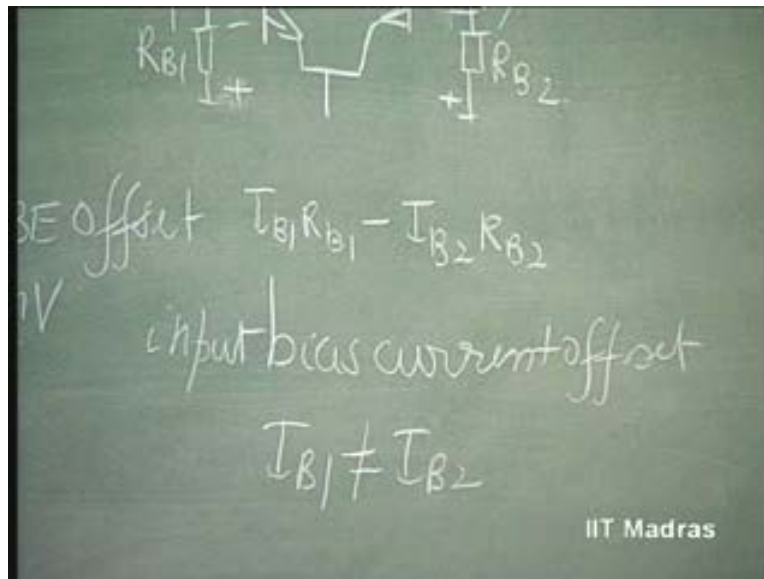 RB1 - + + RB2
BE offset IB1 RB1 - IB2 RB2
mV
input bias current offset
IB1 ≠ IB2
IIT Madras